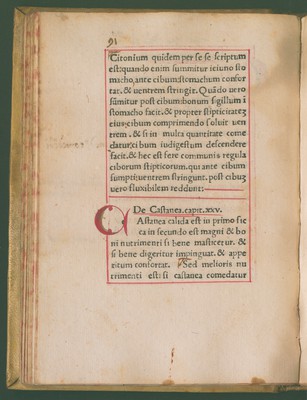 Citonium quidem per se se scriptum
est: quando enim summitur ieiuno sto
macho, ante cibum: stomachum confor
tat. & uentrem stringit. Quãdo uero
sũmitur post cibum: bonum sigillum i
stomacho facit. & propter stipticitatẽ
eius: cibum comprimendo soluit uen
trem. & si in multa quantitate come
datur: cibum indigestum descendere
facit. & hec est fere communis regula
ciborum stipticorum. qui ante cibum
sumpti: uentrem stringunt. post cibũ
uero fluxibilem reddunt:
De Castanea. capit. xxv.
CAstanea calida est in primo sic
ca in secundo est magni & bo
ni nutrimenti si bene masticetur. &
si bene digeritur impinguat. & appe
titum confortat. Sed melioris nu
trimenti est: si castanea comedatur